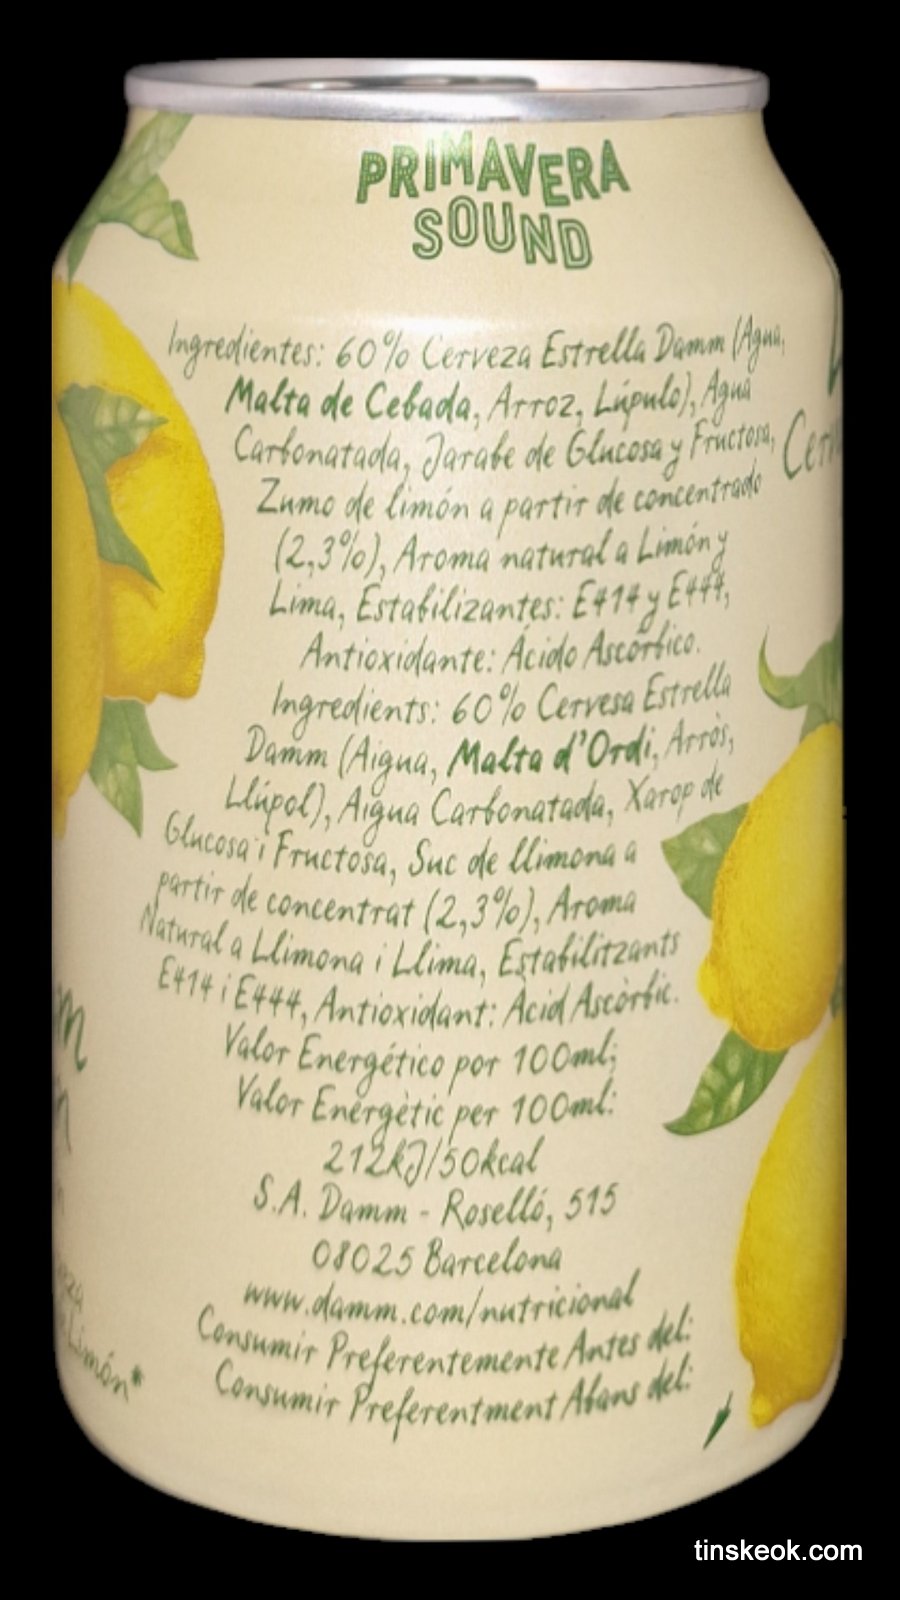 PRIMAVERA
SOUND
Ingredientes: 60% Cerveza Estrella Damm (Agua,
Malta de Cebada, Arroz, Lúpulo), Agua
Carbonatada, Jarabe de Glucosa y Fructosa,
Zumo de limón a partir de concentrado
(2,3%), Aroma natural a Limón y
Lima, Estabilizantes: E414 y E444,
Antioxidante: Ácido Ascórbico.
Ingredients: 60% Cervesa Estrella
Damm (Aigua, Malta d'Ordi, Arròs,
Llúpol), Aigua Carbonatada, Xarop de
Glucosa i Fructosa, Suc de llimona a
partir de concentrat (2,3%), Aroma
Natural a Llimona i Llima, Estabilitzants
E414 i E444, Antioxidant: Àcid Ascòrbic.
Valor Energético por 100ml;
Valor Energètic per 100ml:
212kJ/50kcal
S.A. Damm - Roselló, 515
08025 Barcelona
www.damm.com/nutricional
Consumir Preferentemente Antes del:
Consumir Preferentment Abans del:
Limón*
tinskeok.com